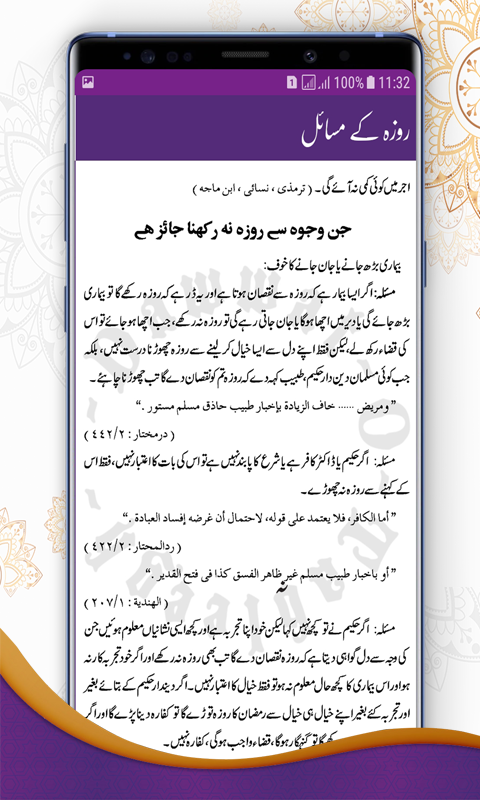 100% 11:32
روزہ کے مسائل
اجر میں کوئی کمی نہ آئے گی۔ ( ترمذی ، نسائی ، ابن ماجه )
جن وجوہ سے روزہ نہ رکھنا جائز ھے
بیماری بڑھ جانے یا جان جانے کا خوف:
مسئلہ: اگر ایسا بیمار ہے کہ روزہ سے نقصان ہوتا ہے اور یہ ڈر ہے کہ روزہ رکھے گا تو بیماری
بڑھ جائے گی یا دیر میں اچھا ہوگا یا جان جاتی رہے گی تو روزہ نہ رکھے، جب اچھا ہو جائے تو اس
کی قضاء رکھ لے، لیکن فقط اپنے دل سے ایسا خیال کر لینے سے روزہ چھوڑنا درست نہیں، بلکہ
جب کوئی مسلمان دین دار حکیم، طبیب کہہ دے کہ روزہ تم کو نقصان دے گا تب چھوڑنا چاہئے ۔
” ومريض ...... خاف الزيادة بإخبار طبيب حاذق مسلم مستور .“
( درمختار : ٤٤٢/٢ )
مسئلہ: اگر حکیم یا ڈاکٹر کافر ہے یا شرع کا پابند نہیں ہے تو اس کی بات کا اعتبار نہیں، فقط اس
کے کہنے سے روزہ نہ چھوڑے۔
” أما الكافر، فلا يعتمد على قوله، لاحتمال أن غرضه إفساد العبادة .“
( ردالمحتار : ٤٢٢/٢ )
” أو باخبار طبيب مسلم غير ظاهر الفسق كذا فى فتح القدير .“
( الهندية : ٢٠٧/١ )
مسئلہ: اگر حکیم نے تو کچھ نہیں کہا لیکن خود اپنا تجربہ ہے اور کچھ ایسی نشانیاں معلوم ہوئیں جن
کی وجہ سے دل گواہی دیتا ہے کہ روزہ نقصان دے گا تب بھی روزہ نہ رکھے اور اگر خود تجربہ کار نہ
ہو اور اس بیماری کا کچھ حال معلوم نہ ہو تو فقط خیال کا اعتبار نہیں۔ اگر دیندار حکیم کے بتائے بغیر
اور تجربہ کئے بغیر اپنے خیال ہی خیال سے رمضان کا روزہ توڑے گا تو کفارہ دینا پڑے گا اور اگر
گا تو گنہگار ہوگا، قضاء واجب ہوگی، کفارہ نہیں۔